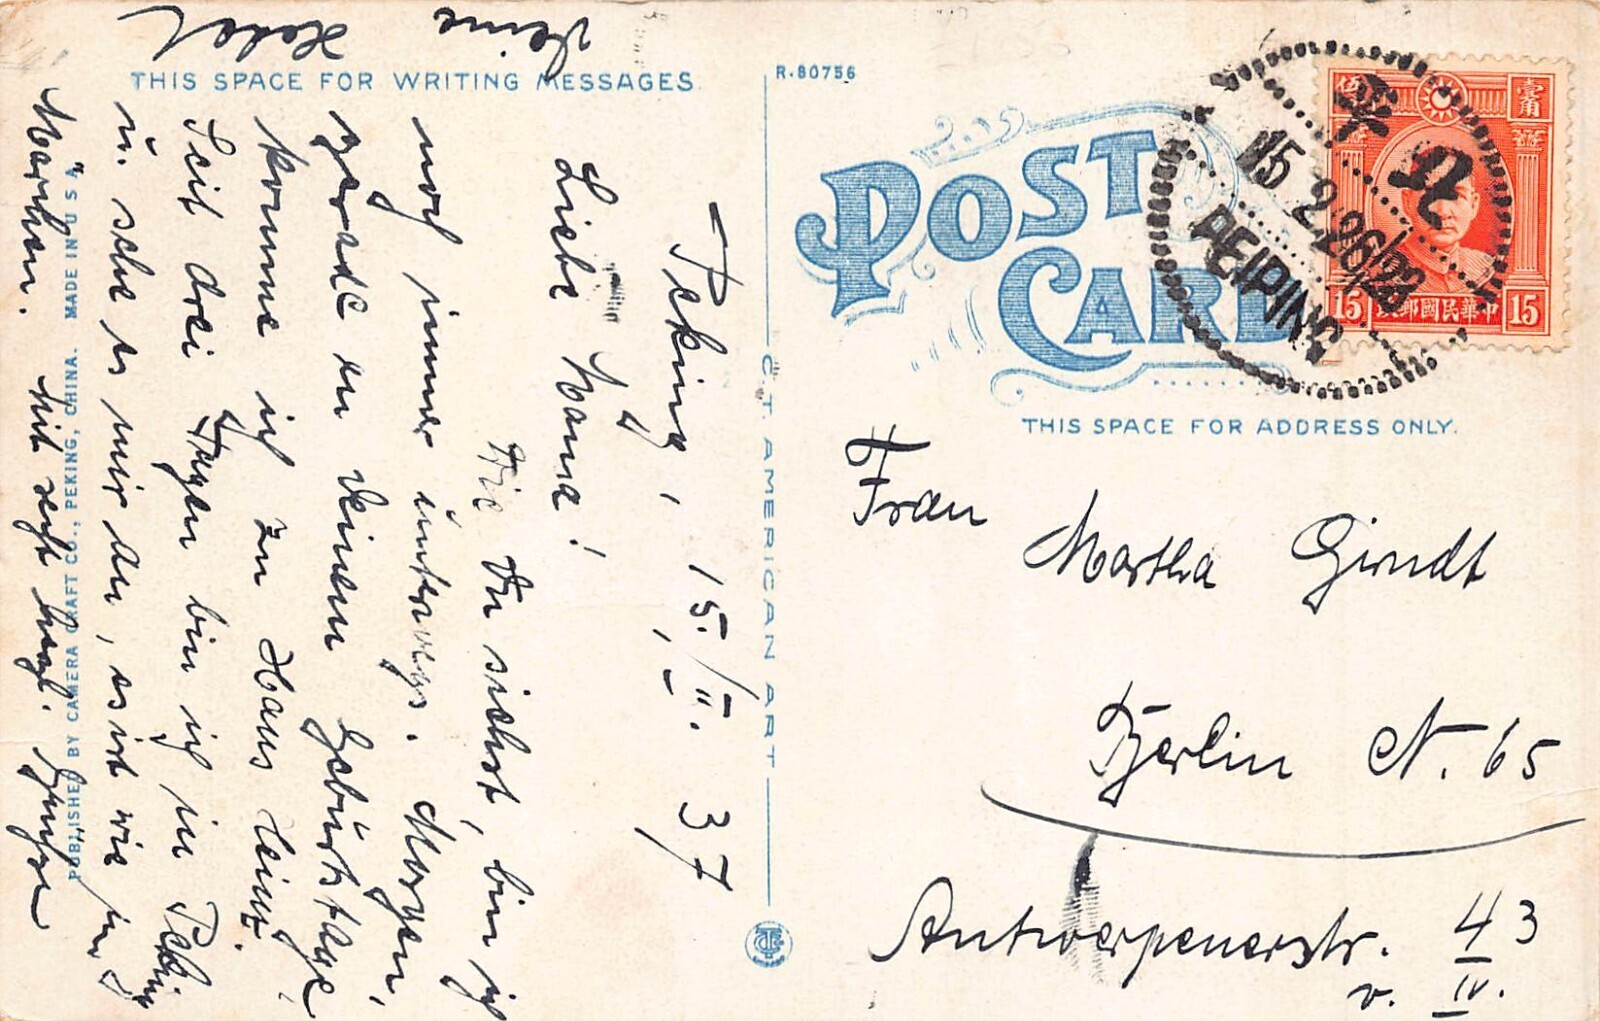 THIS SPACE FOR WRITING MESSAGES.
R-80756
POST CARD
THIS SPACE FOR ADDRESS ONLY.
C.T. AMERICAN ART
PUBLISHED BY CAMERA CRAFT CO., PEKING, CHINA. MADE IN U S A
平
15 2 26/28
PEIPING
壹角
15
中華民國郵政
15
Peking, 15./II. 37
Liebe Mama!
Wie Du siehst, bin ich
noch immer unterwegs. Morgen,
gerade an Deinem Geburtstage
komme ich zu Haus
Seit drei Tagen bin ich in Peking
u. sehe es mir an, es ist wie im
Märchen. Mit recht herzl.
Deine
Frau
Martha Girndt
Berlin N. 65
Antwerpenerstr. 43
v. IV.